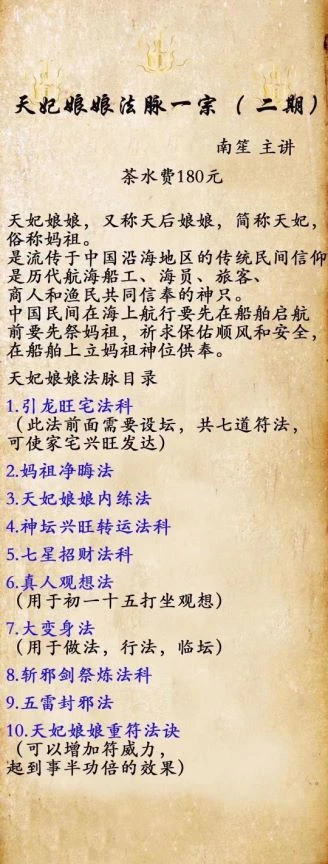 天妃娘娘法脉一宗（二期）
南笙 主讲
茶水费180元
天妃娘娘，又称天后娘娘，简称天妃，
俗称妈祖。
是流传于中国沿海地区的传统民间信仰
是历代航海船工、海员、旅客、
商人和渔民共同信奉的神只。
中国民间在海上航行要先在船舶启航
前要先祭妈祖，祈求保佑顺风和安全，
在船舶上立妈祖神位供奉。
天妃娘娘法脉目录
1.引龙旺宅法科
（此法前面需要设坛，共七道符法，
可使家宅兴旺发达）
2.妈祖净晦法
3.天妃娘娘内练法
4.神坛兴旺转运法科
5.七星招财法科
6.真人观想法
（用于初一十五打坐观想）
7.大变身法
（用于做法，行法，临坛）
8.斩邪剑祭炼法科
9.五雷封邪法
10.天妃娘娘重符法诀
（可以增加符威力，
起到事半功倍的效果）